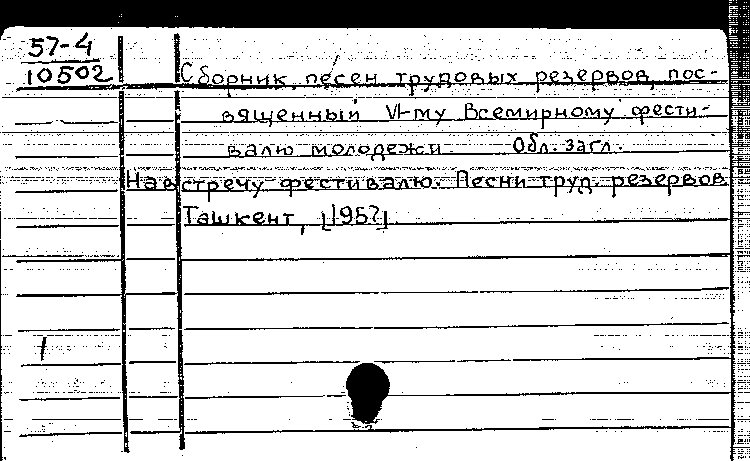 57-4
10502
Сборник песен трудовых резервов, пос-
вященный VI-му Всемирному фести-
валю молодежи Обл. загл.
Навстречу фестивалю. Песни труд. резервов
Ташкент, [1957]
1